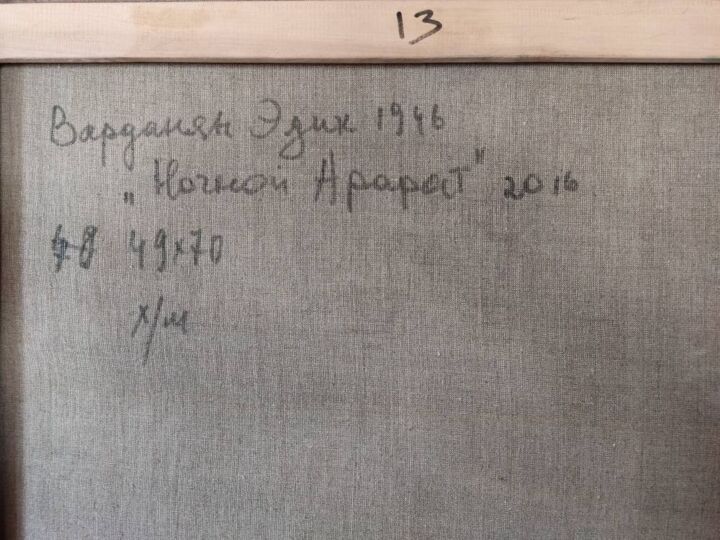 13
Варданян Эдик 1946
„Ночной Арарат" 2016
49x70
х/м